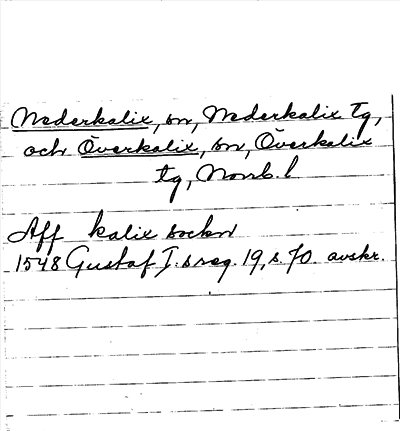 Nederkalix, sn, Nederkalix tg,
och Överkalix, sn, Överkalix
tg, Norrb. l
Aff kalix sockn
1548 Gustaf I:s reg. 19, s. 70 avskr.